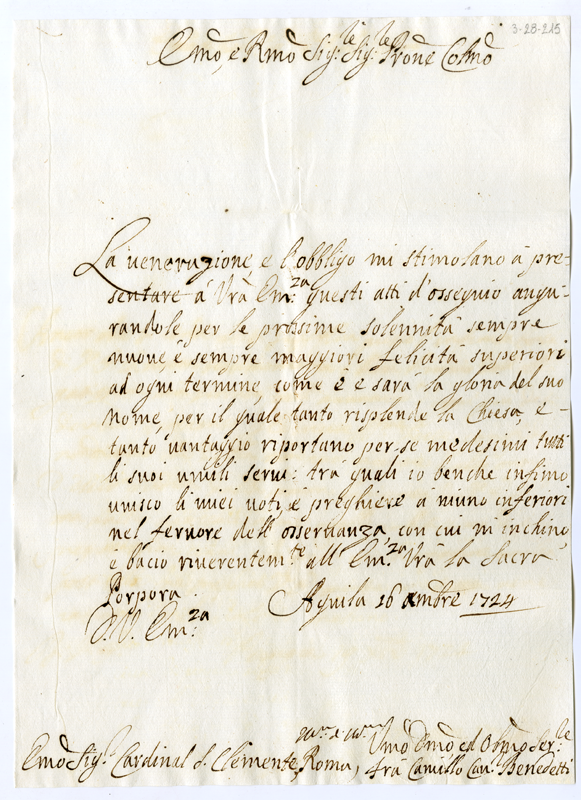 3-28-215
Emõ, e Rmõ Sig:re Sig:re Prõne Colmõ
La venerazione, e l'obbligo mi stimolano à pre-
sentare à Vrã Em:za questi atti d'ossequio augu-
randole per le prossime solennità sempre
nuove, e sempre maggiori felicità superiori
ad ogni termine come è e sarà la gloria del suo
Nome, per il quale tanto risplende la Chiesa, e
tanto vantaggio riportano per se medesimi tutti
li suoi umili servi: trà quali io benche infimo
unisco li miei voti, e preghiere à niuno inferiori
nel fervore dell'osservanza, con cui m'inchino
e bacio riverentem:te all'Em:za Vrã la Sacra
Porpora.
Aquila 16 Xmbre 1724
D. V. Em:za
Umõ Dmõ ed Obmõ Ser:re
Emõ Sig:r Cardinal S. Clemente, Roma,
frà Camillo Cav. Benedetti